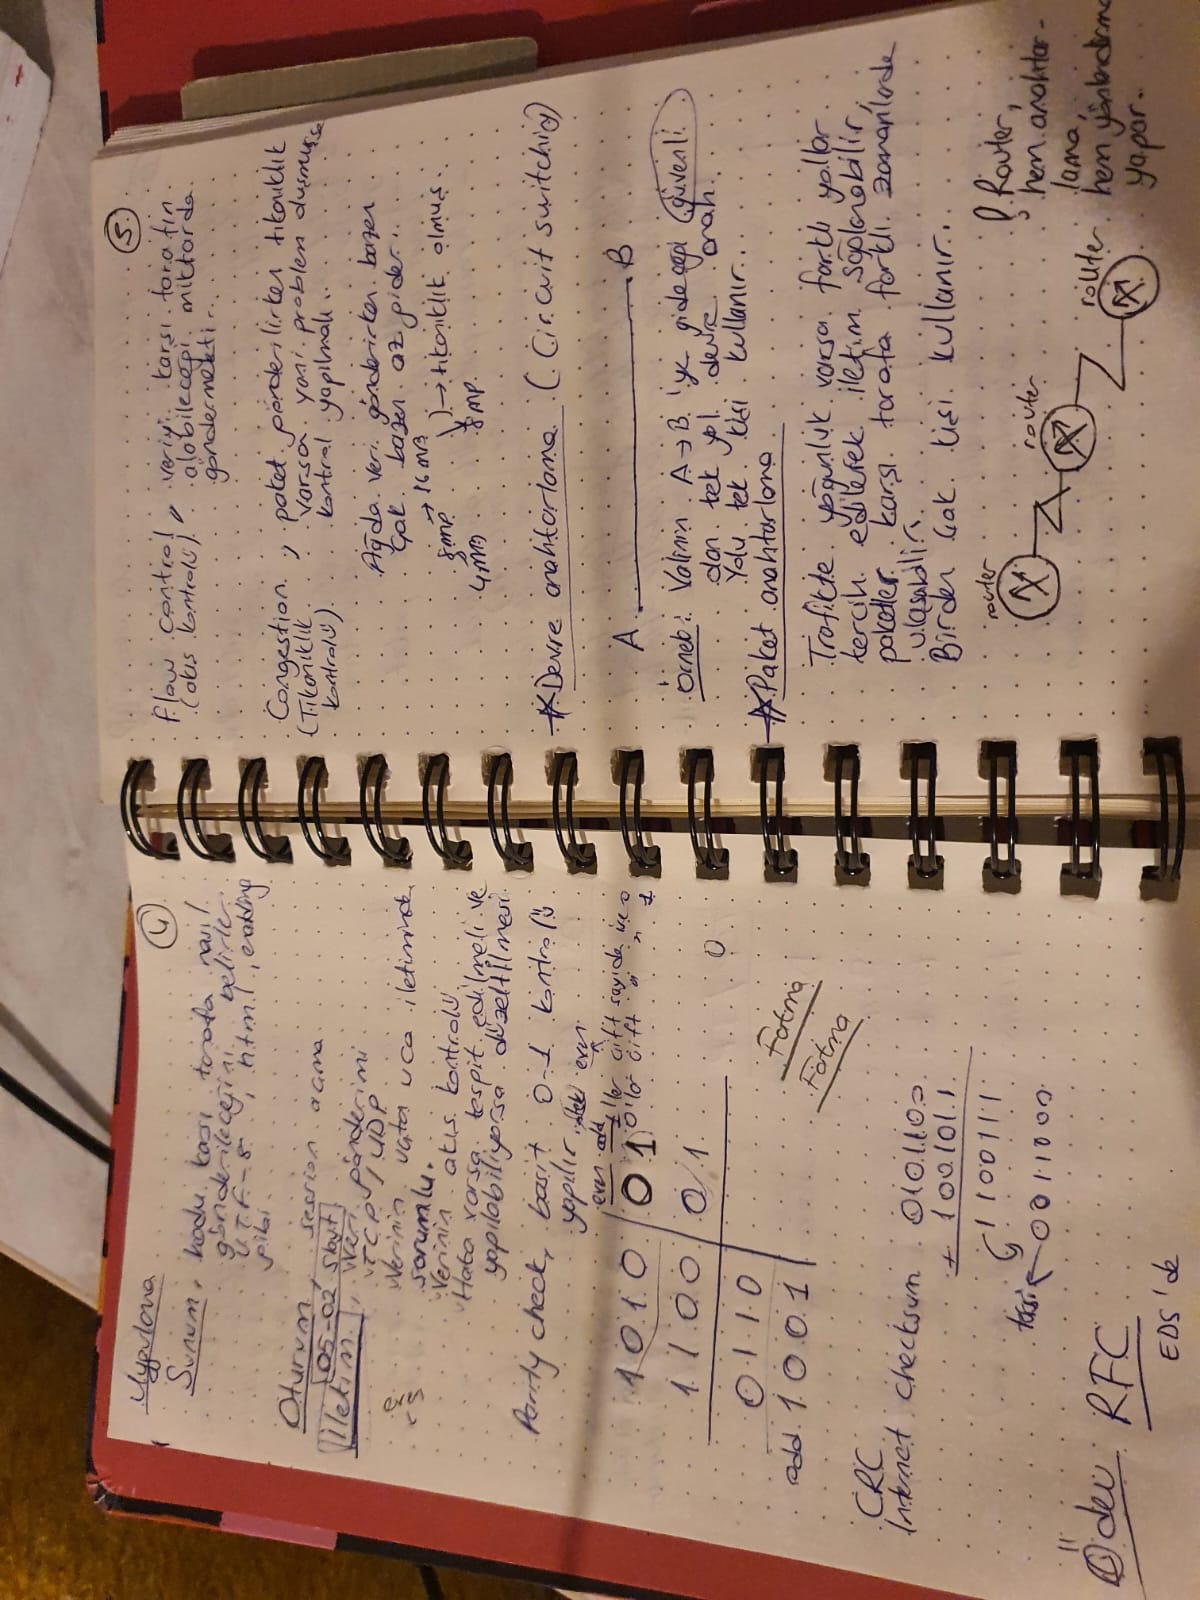 4
Uygulama
Sunum, kodu karşı tarafa nasıl
gönderileceğini belirler
UTF-8, html, encoding
gibi.
Oturum, session açma
05-02 Slayt
İletim, Veri gönderimi
TCP / UDP
Verinin uçtan uca iletiminde
sorumlu.
Verinin akış kontrolü
Hata varsa tespit edilmeli ve
yapılabiliyorsa düzeltilmesi.
Parity check, basit 0-1 kontrolü
yapılır. (tek) even
even odd 1'ler çift sayıda ise 0
1010 | 01 0'lar çift " " 1
1100 | 01
0
0110
odd 1001
Fatma
Fatma
CRC
Internet checksum 0101100
+ 1001011
1100111
tersi ← 0011000
Ödev RFC
EDS'de
5.
Flow control, veriyi karşı tarafın
(akış kontrolü), alabileceği miktarda
göndermektir.
Congestion, paket gönderilirken tıkanıklık
(Tıkanıklık varsa yani problem duşmuşse
kontrolü). kontrol yapılmalı.
Ağda veri gönderirken bazen
çok bazen az gider..
→ 16 MB
8mp ) → tıkanıklık olmuş.
4MB 8mp.
* Devre anahtarlama (Circuit switching)
A B
Örneğ: Valinin A → B 'ye gideceği güvenli
dan tek yol devre anah.
Yolu tek kişi kullanır..
* Paket anahtarlama
Trafikte yoğunluk varsa farklı yollar
tercih edilerek iletim sağlanabilir,
paketler karşı tarafa farklı zamanlarda
ulaşabilir.
Birden çok kişi kullanır..
router
router
router
Router,
hem anahtar-
lama,
hem yönlendirme
yapar.